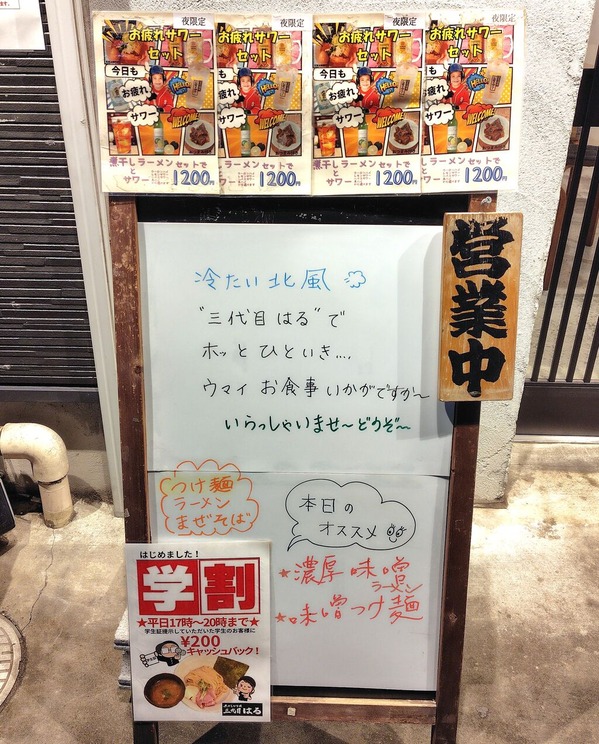 夜限定
お疲れサワー
セット
今日も
お疲れ
サワー
HELLO
WELCOME
煮干しラーメンセットで
とサワー
1200円
夜限定
お疲れサワー
セット
も
お疲れ
サワー
HELLO
WELCOME
ラーメンセットで
サワー
1200円
夜限定
お疲れサワー
セット
今日も
お疲れ
サワー
HELLO
WELCOME
煮干しラーメンセットで
とサワー
1200円
夜限定
お疲れサワー
セット
も
お疲れ
サワー
HELLO
WELCOME
ラーメンセットで
サワー
1200円
営業中
冷たい北風
"三代目はる"で
ホッとひといき....
ウマイお食事いかがですか〜
いらっしゃいませ〜どうぞ〜
つけ麺
ラーメン
まぜそば
本日の
オススメ
★濃厚味噌
ラーメン
★味噌つけ麺
はじめました!
学割
★平日17時〜20時まで★
学生証提示していただいた学生のお客様に
¥200
キャッシュバック!
三代目はる